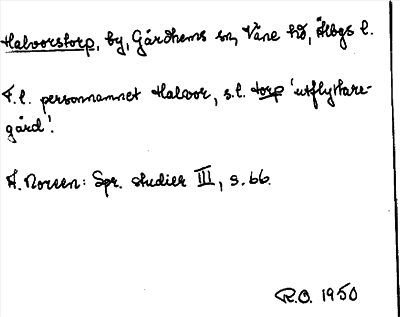 Halvorstorp, by, Gärdhems sn, Väne hd, Älvbgs l.
F.l. personnamnet Halvor, s.l. torp 'utflyttare-
gård'.
A. Noreen: Spr. studier III, s. 66.
R.O. 1950